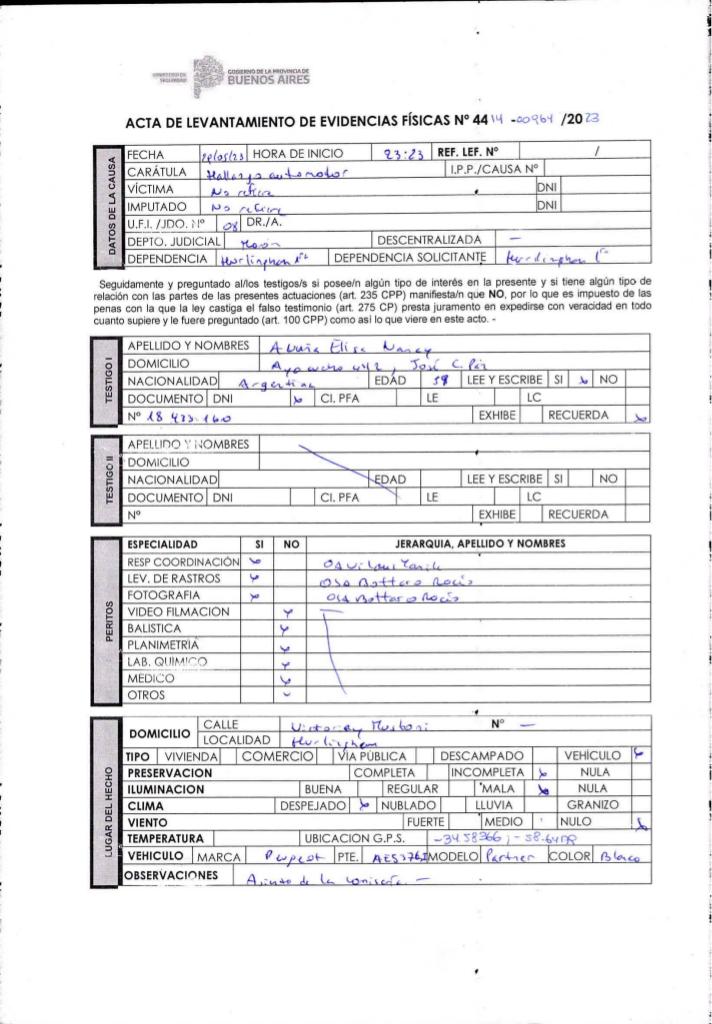 MINISTERIO DE
SEGURIDAD
GOBIERNO DE LA PROVINCIA DE
BUENOS AIRES
ACTA DE LEVANTAMIENTO DE EVIDENCIAS FÍSICAS Nº 4414-00964/2023
DATOS DE LA CAUSA
FECHA /05/23 HORA DE INICIO 23:23 REF. LEF. Nº /
CARÁTULA Hallazgo automotor I.P.P./CAUSA Nº
VÍCTIMA No refiere DNI
IMPUTADO No refiere DNI
U.F.I. /JDO. Nº 08 DR./A.
DEPTO. JUDICIAL Morón DESCENTRALIZADA —
DEPENDENCIA Hurlingham 1ª DEPENDENCIA SOLICITANTE Hurlingham 1ª
Seguidamente y preguntado al/los testigos/s si posee/n algún tipo de interés en la presente y si tiene algún tipo de
relación con las partes de las presentes actuaciones (art. 235 CPP) manifiesta/n que NO, por lo que es impuesto de las
penas con la que la ley castiga el falso testimonio (art. 275 CP) presta juramento en expedirse con veracidad en todo
cuanto supiere y le fuere preguntado (art. 100 CPP) como así lo que viere en este acto. -
TESTIGO I
APELLIDO Y NOMBRES Elisa Nancy
DOMICILIO Ayacucho 442, José C. Paz
NACIONALIDAD Argentina EDAD 59 LEE Y ESCRIBE SI x NO
DOCUMENTO DNI x CI. PFA LE LC
Nº 18 473 160 EXHIBE RECUERDA x
TESTIGO II
APELLIDO Y NOMBRES
DOMICILIO
NACIONALIDAD EDAD LEE Y ESCRIBE SI NO
DOCUMENTO DNI CI. PFA LE LC
Nº EXHIBE RECUERDA
PERITOS
ESPECIALIDAD SI NO JERARQUIA, APELLIDO Y NOMBRES
RESP COORDINACIÓN x
LEV. DE RASTROS x Bottaro Rocío
FOTOGRAFIA x Bottaro Rocío
VIDEO FILMACION x
BALISTICA x
PLANIMETRÍA x
LAB. QUÍMICO x
MEDICO x
OTROS x
LUGAR DEL HECHO
DOMICILIO CALLE Nº —
LOCALIDAD Hurlingham
TIPO VIVIENDA COMERCIO VÍA PÚBLICA DESCAMPADO VEHÍCULO x
PRESERVACION COMPLETA INCOMPLETA x NULA
ILUMINACION BUENA REGULAR MALA x NULA
CLIMA DESPEJADO x NUBLADO LLUVIA GRANIZO
VIENTO FUERTE MEDIO NULO x
TEMPERATURA UBICACION G.P.S. -3458366,
VEHICULO MARCA Peugeot PTE. MODELO Partner COLOR Blanco
OBSERVACIONES Asiento de la comisaría —